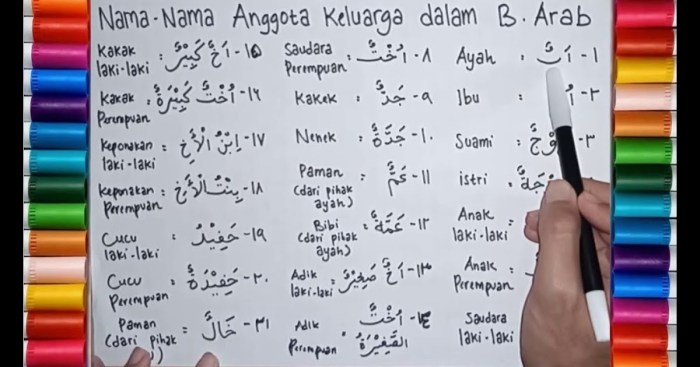 Nama-Nama Anggota Keluarga dalam B. Arab
Ayah : اَبٌ - ١
Ibu : - ٢
Suami : - ٣
istri :
Anak :
laki-laki
Anak :
Perempuan
Saudara
laki-laki
Saudara : اُخْتٌ - ٨
Perempuan
Kakek : جَدٌّ - ٩
Nenek : جَدَّةٌ - ١٠
Paman : عَمٌّ - ١١
(dari pihak
ayah)
Bibi : عَمَّةٌ - ١٢
(dari pihak
ayah)
Adik : اَخٌ صَغِيْرٌ - ١٣
laki-laki
Adik : اُخْتٌ - ١٤
Perempuan الصَّغِيْرَةٌ
Kakak : اَخٌ كَبِيْرٌ - ١٥
laki-laki
Kakak : اُخْتٌ كَبِيْرَةٌ - ١٦
Perempuan
Keponakan : اِبْنُ الْأَخِ - ١٧
laki-laki
Keponakan : بِنْتُ الْأَخِ - ١٨
Perempuan
Cucu : حَفِيْدٌ - ١٩
laki-laki
Cucu : حَفِيْدَةٌ - ٢٠
Perempuan
Paman : خَالٌ - ٢١
(dari pihak